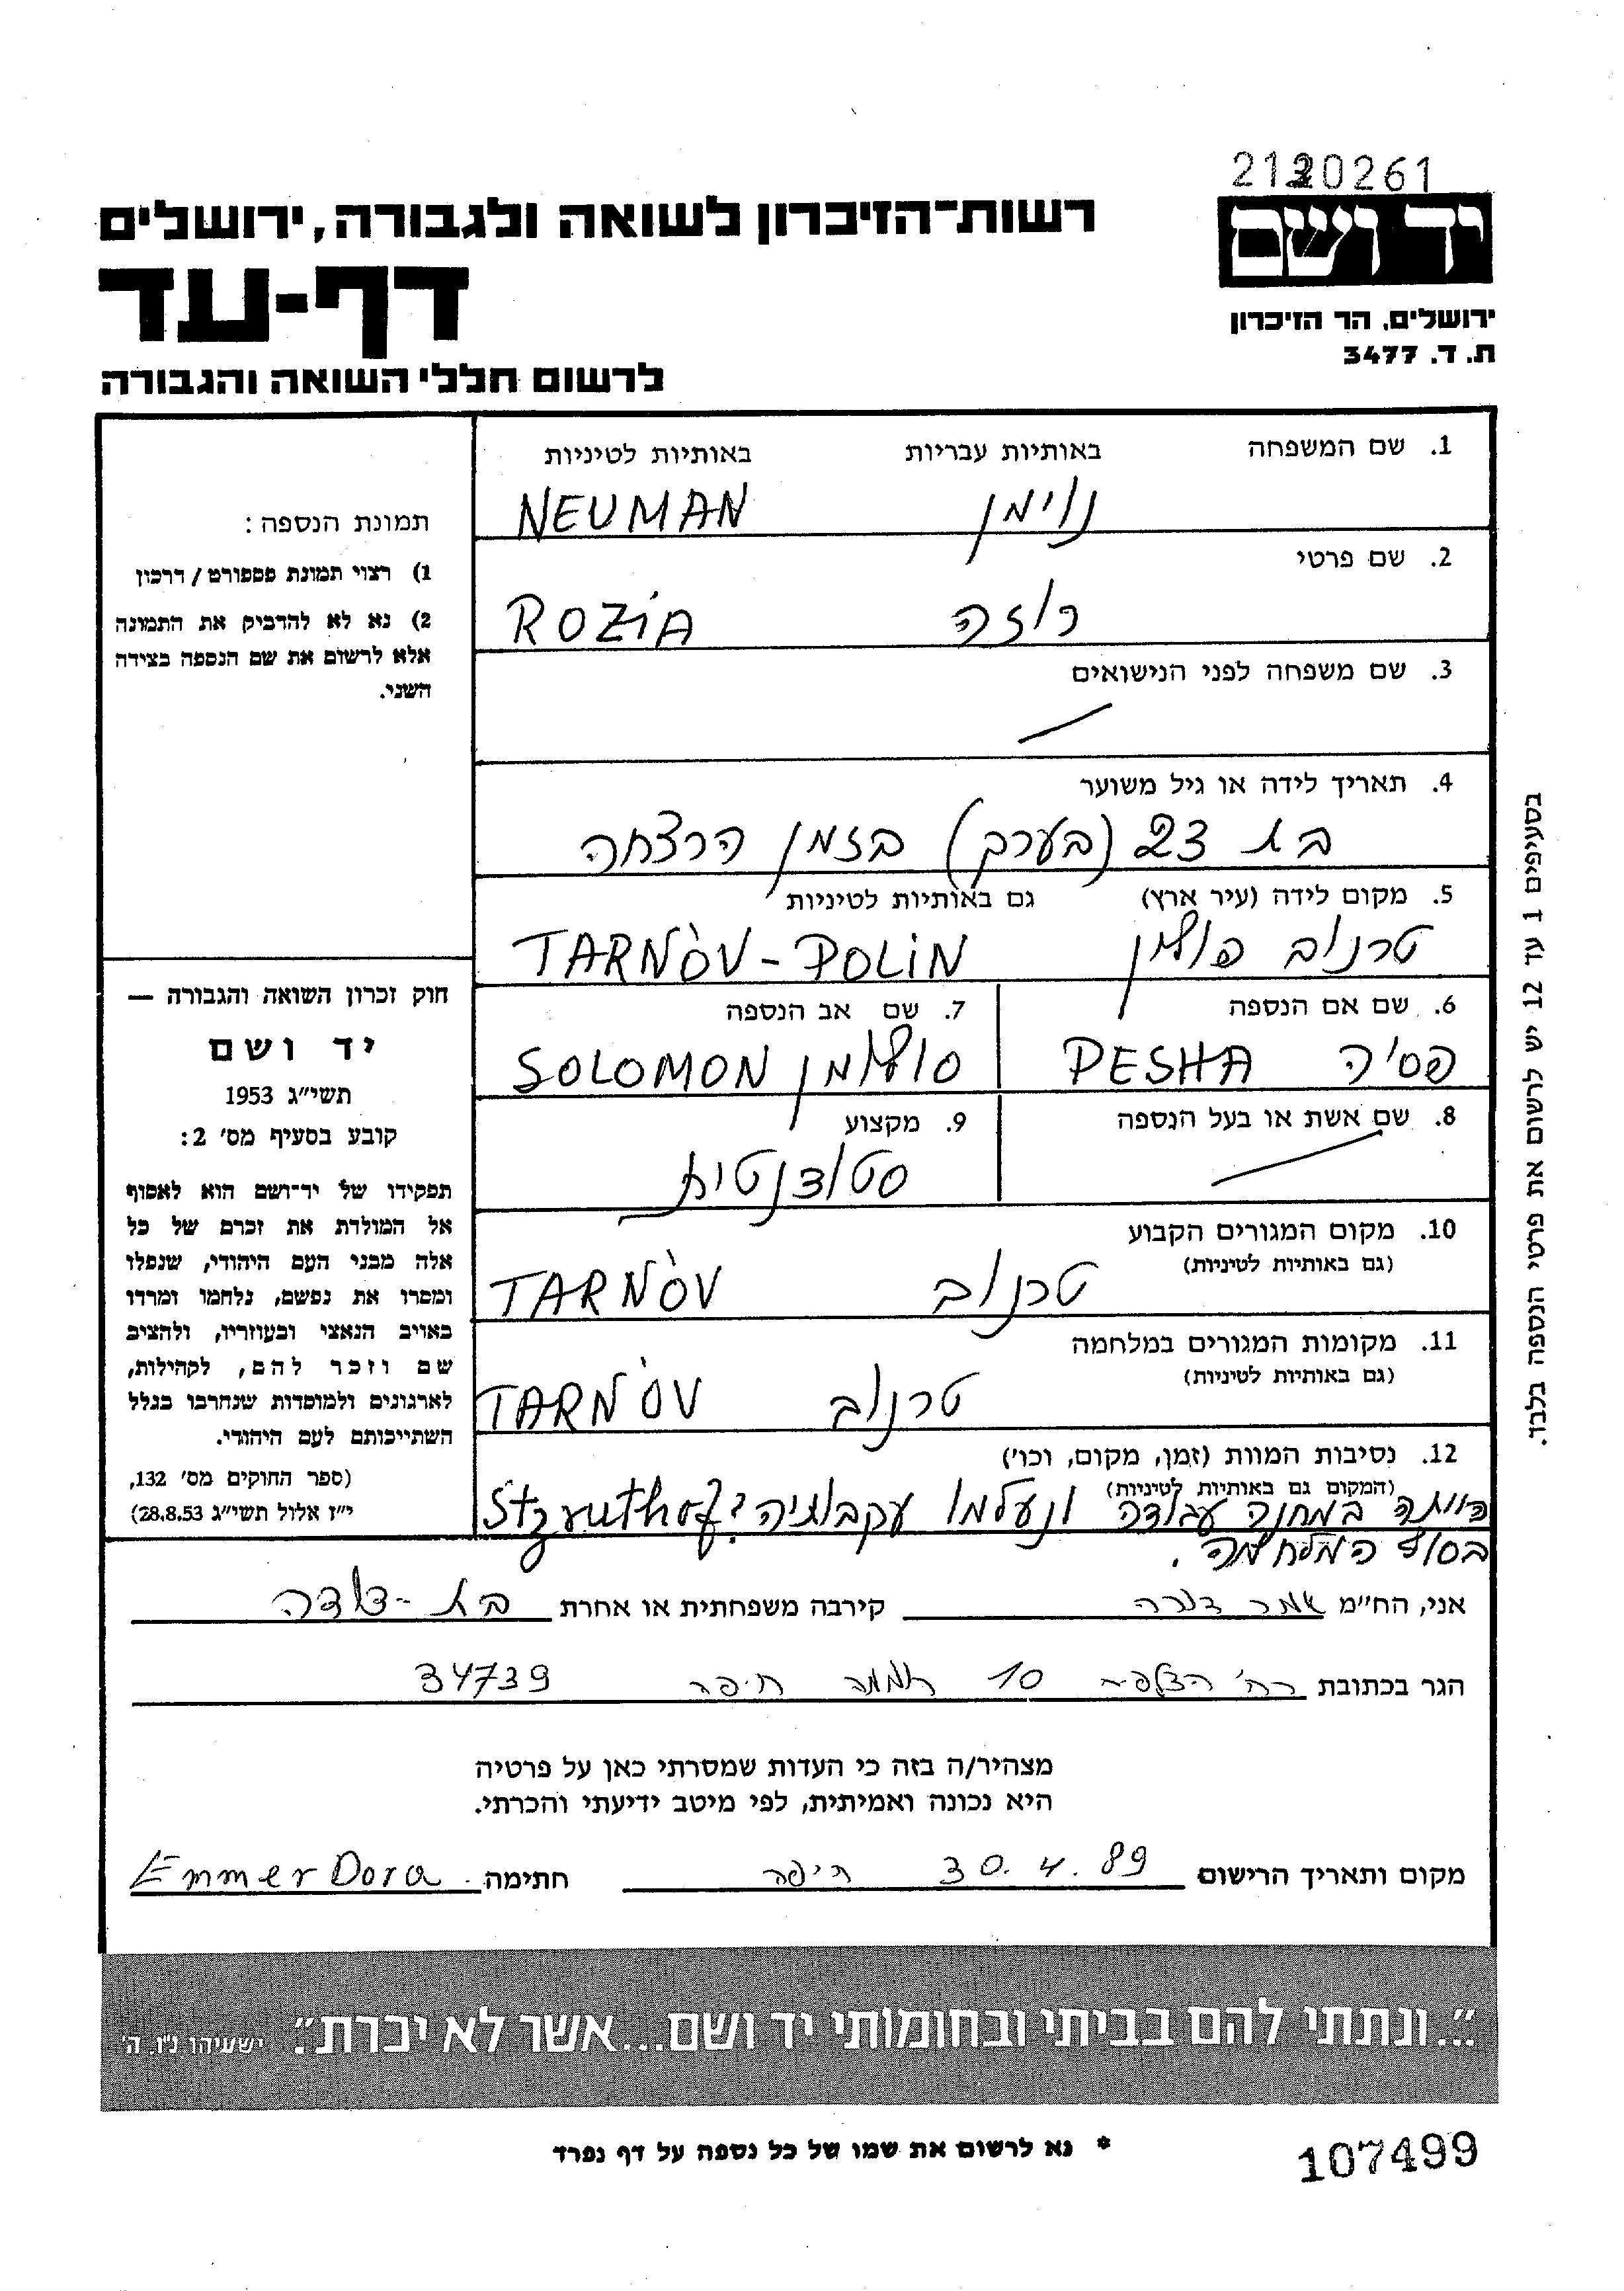 2120261
יד ושם
רשות־הזיכרון לשואה ולגבורה, ירושלים
דף-עד
לרשום חללי השואה והגבורה
ירושלים, הר הזיכרון
ת. ד. 3477
1. שם המשפחה באותיות עבריות באותיות לטיניות
נוימן NEUMAN
2. שם פרטי
רוזה ROZiA
3. שם משפחה לפני הנישואים
4. תאריך לידה או גיל משוער
בת 23 (בערך) בזמן הרצחה
5. מקום לידה (עיר ארץ) גם באותיות לטיניות
טרנוב פולין TARNÒV-POLiN
6. שם אם הנספה
פסיה PESHA
7. שם אב הנספה
סולומן SOLOMON
8. שם אשת או בעל הנספה
9. מקצוע
סטודנטית
10. מקום המגורים הקבוע
(גם באותיות לטיניות)
טרנוב TARNÒV
11. מקומות המגורים במלחמה
(גם באותיות לטיניות)
טרנוב TARNÒV
12. נסיבות המוות (זמן, מקום, וכו')
(המקום גם באותיות לטיניות)
היותה במחנה עבודה ונעלמו עקבותיה? Stzruthof
בסוף המלחמה.
תמונת הנספה:
1) רצוי תמונת פספורט / דרכון
2) נא לא להדביק את התמונה
אלא לרשום את שם הנספה בצידה
השני.
חוק זכרון השואה והגבורה —
יד ושם
תשי"ג 1953
קובע בסעיף מס' 2:
תפקידו של יד־ושם הוא לאסוף
אל המולדת את זכרם של כל
אלה מבני העם היהודי, שנפלו
ומסרו את נפשם, נלחמו ומרדו
באויב הנאצי ובעוזריו, ולהציב
שם וזכר להם, לקהילות,
לארגונים ולמוסדות שנחרבו בגלל
השתייכותם לעם היהודי.
(ספר החוקים מס' 132,
י"ז אלול תשי"ג 28.8.53)
בסעיפים 1 עד 12 יש לרשום את פרטי הנספה בלבד.
אני, הח"מ אמר דורה קירבה משפחתית או אחרת בת-דודה
הגר בכתובת רח' 10 חיפה 34739
מצהיר/ה בזה כי העדות שמסרתי כאן על פרטיה
היא נכונה ואמיתית, לפי מיטב ידיעתי והכרתי.
מקום ותאריך הרישום 30.4.89 חיפה חתימה Emmer Dora
"...ונתתי להם בביתי ובחומותי יד ושם...אשר לא יכרת". ישעיהו נ"ו, ה'
* נא לרשום את שמו של כל נספה על דף נפרד
107499